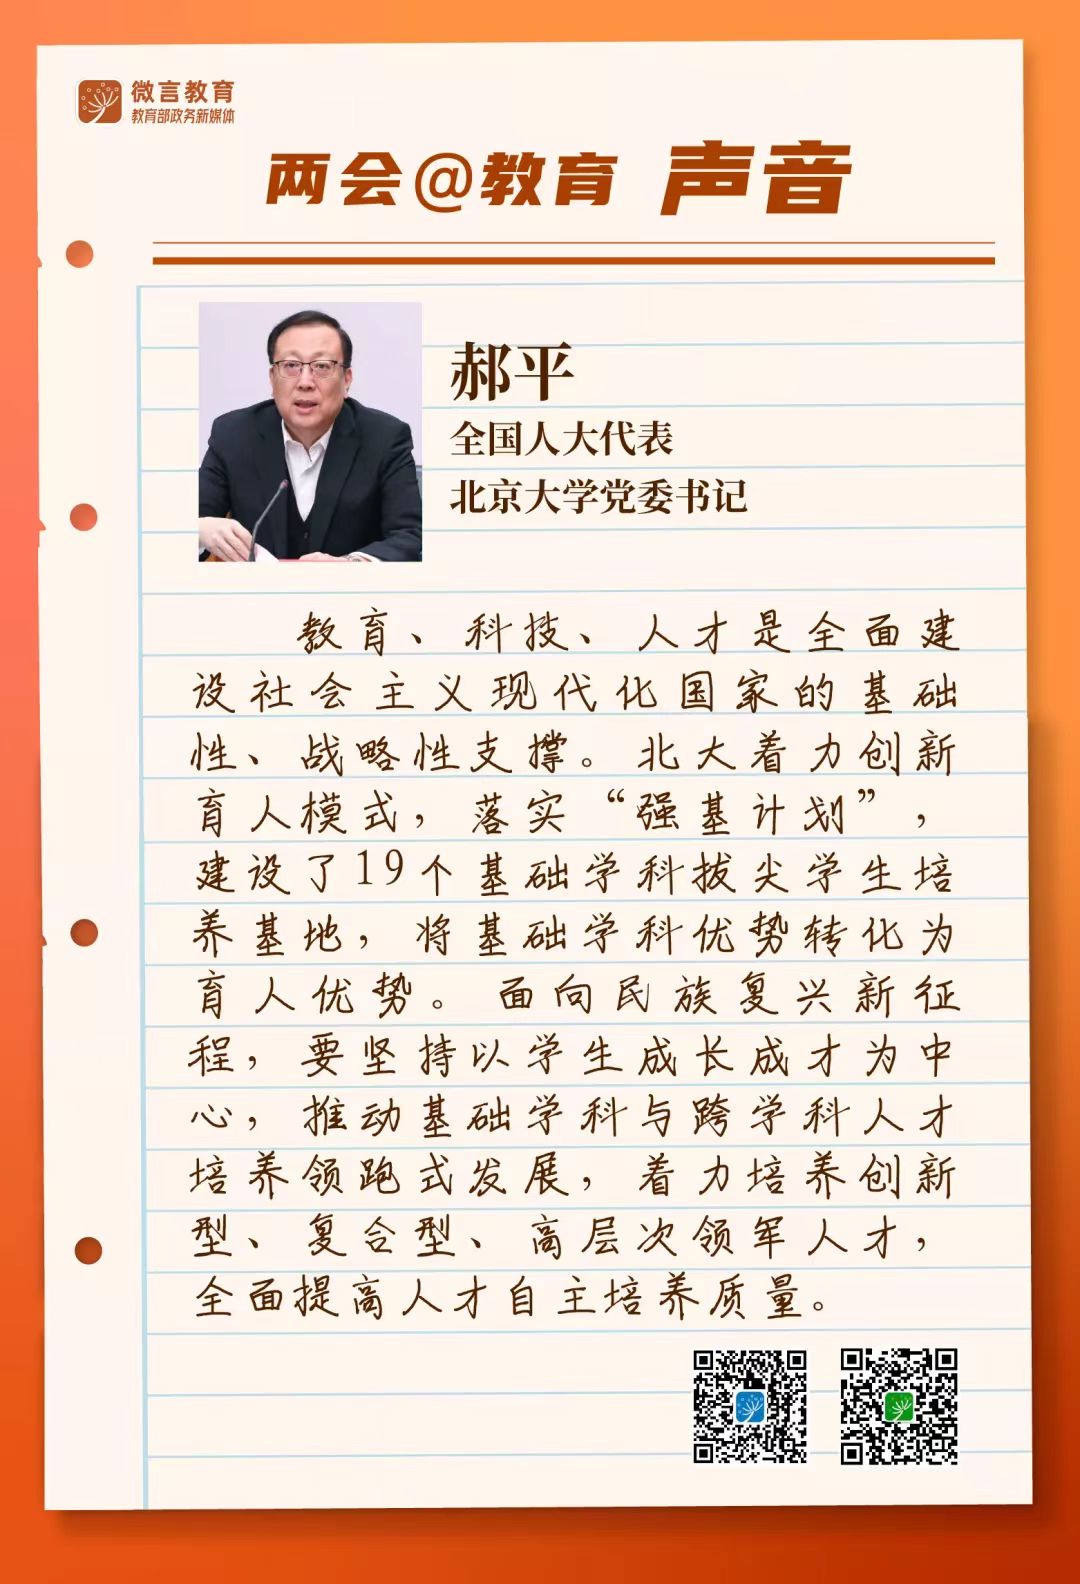 微言教育
教育部政务新媒体
两会@教育 声音
郝平
全国人大代表
北京大学党委书记
教育、科技、人才是全面建
设社会主义现代化国家的基础
性、战略性支撑。北大着力创新
育人模式，落实“强基计划”，
建设了19个基础学科拔尖学生培
养基地，将基础学科优势转化为
育人优势。面向民族复兴新征
程，要坚持以学生成长成才为中
心，推动基础学科与跨学科人才
培养领跑式发展，着力培养创新
型、复合型、高层次领军人才，
全面提高人才自主培养质量。